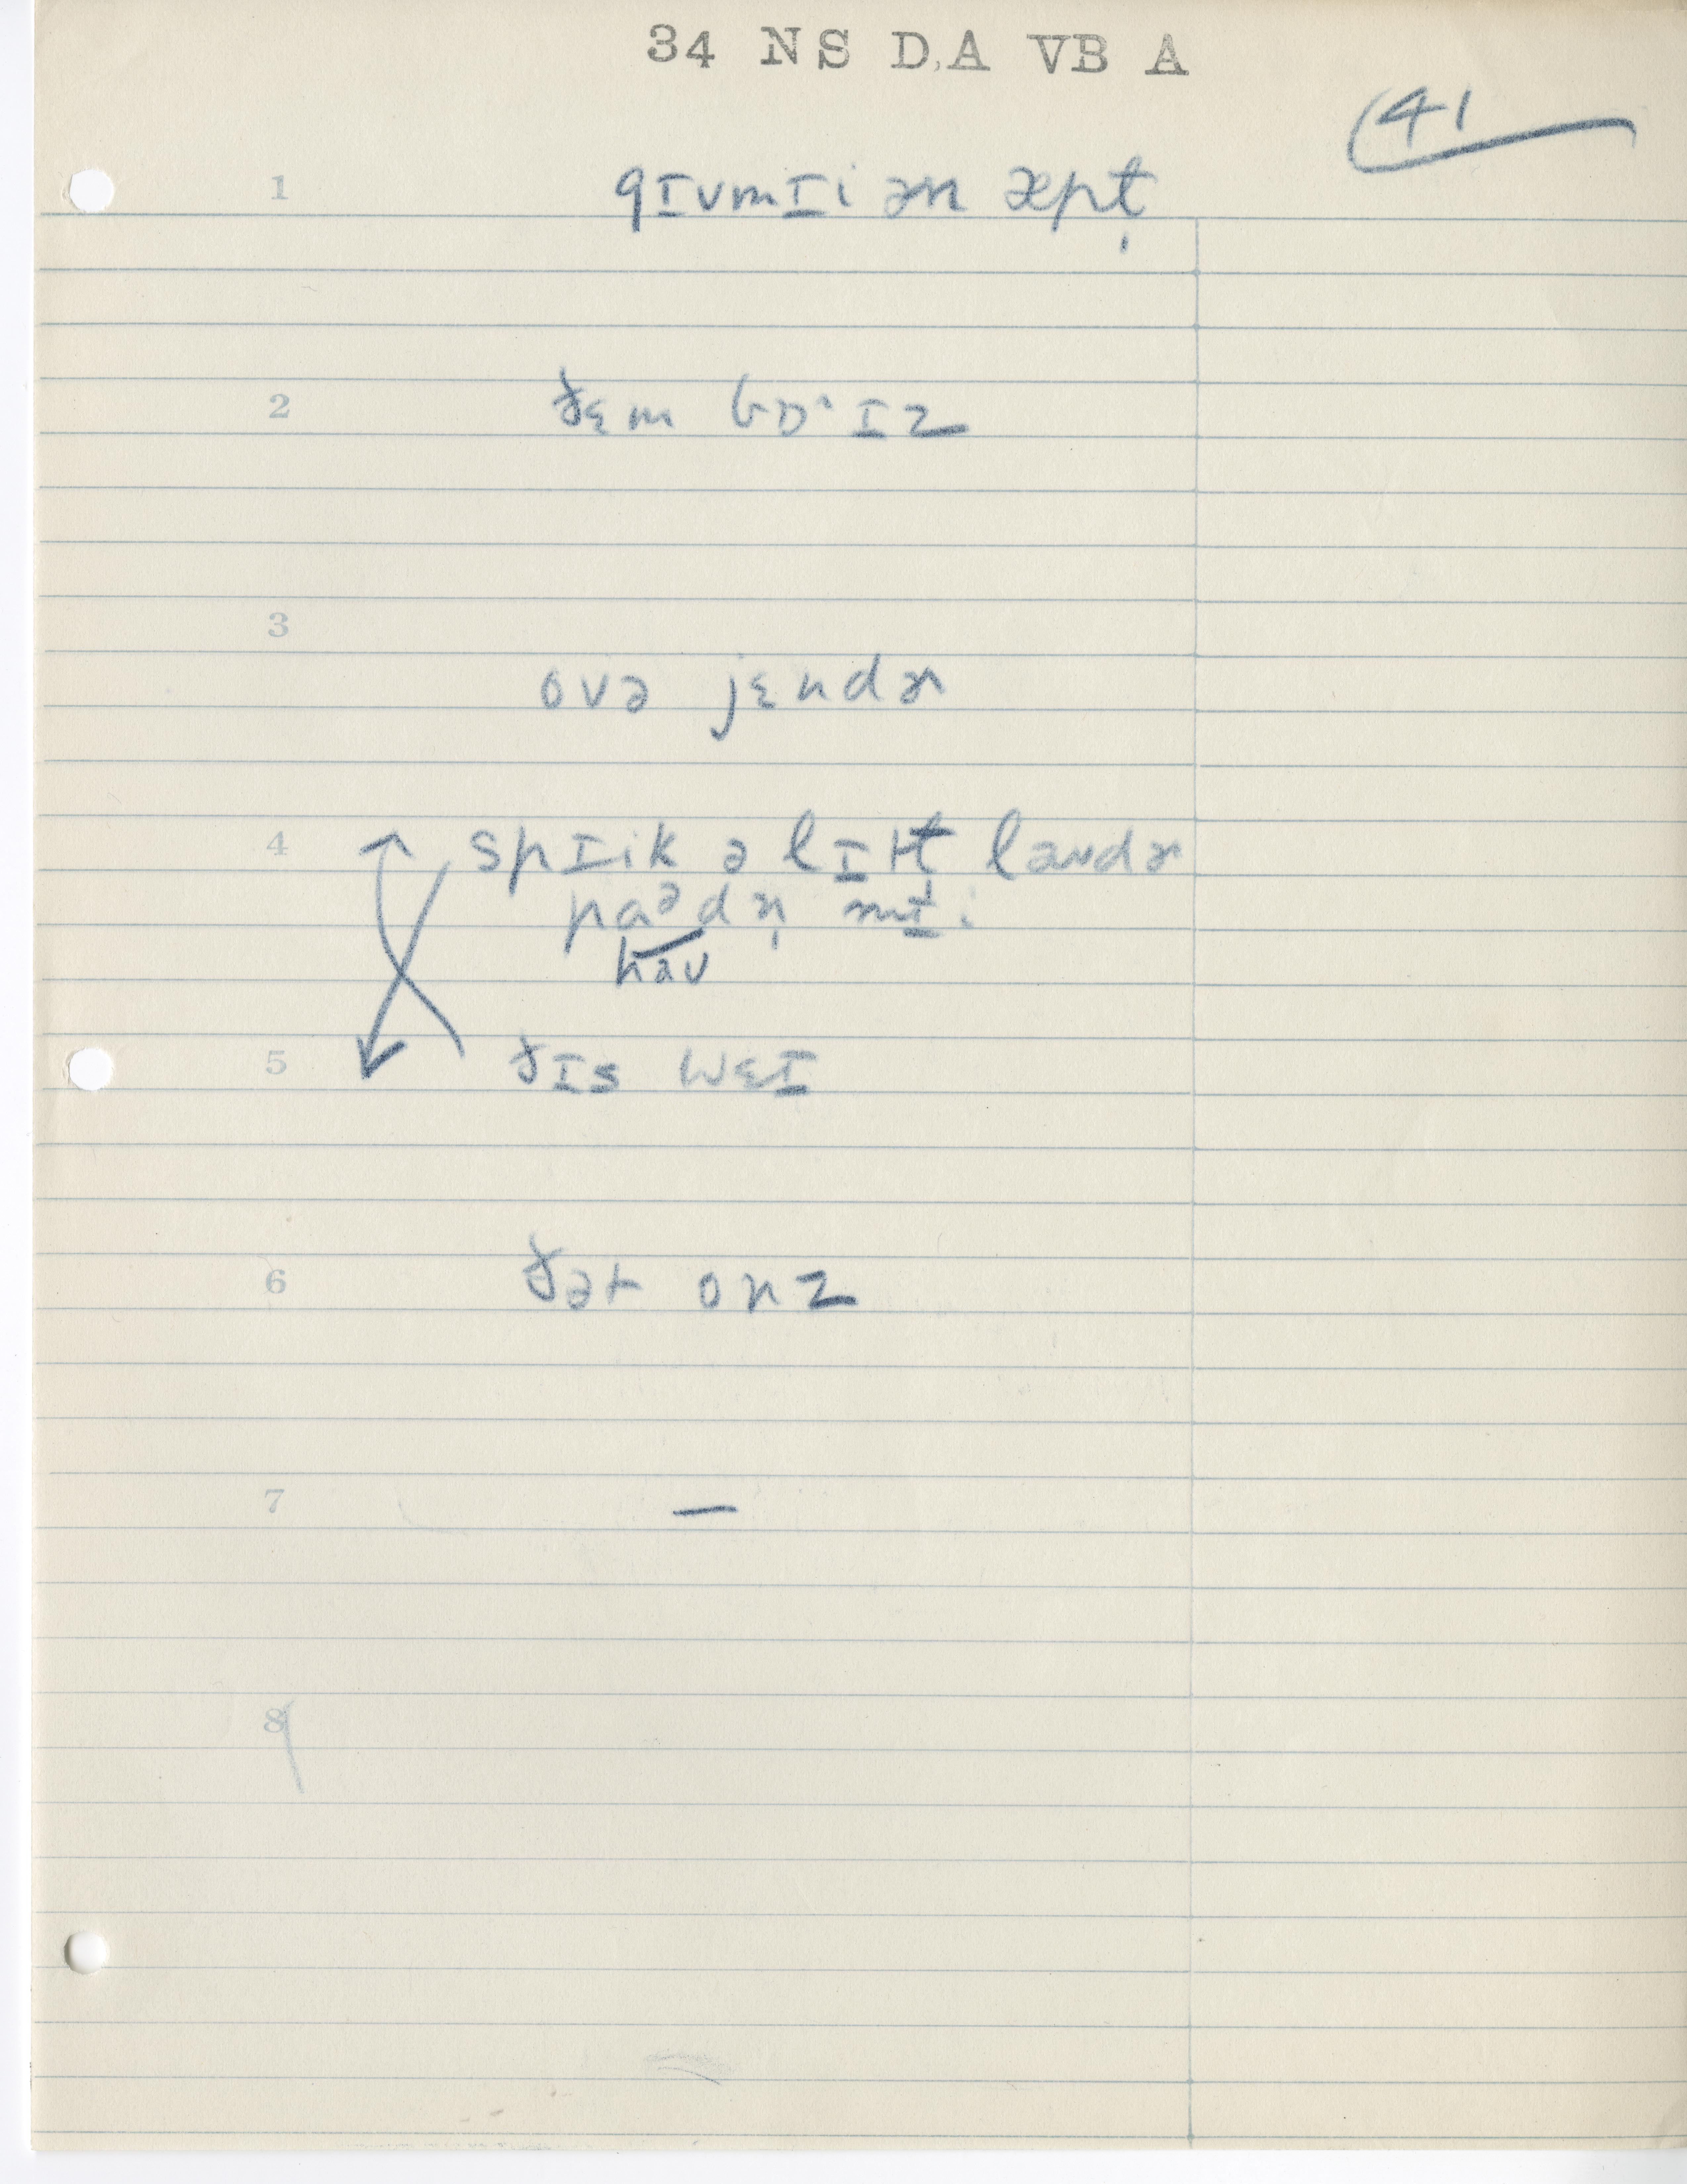 34 NS D,A VB A
41
1 gɪvmɪi ən æpt̩
2 ðɛm bɒˑɪz
3
ovə jɛndɚ
4 spɪik ə lɪtt̩ laʊdɚ
paᵊdn̩ mɪi
haʊ
5 ðɪs wɛɪ
6 ðət onz
7 —
8